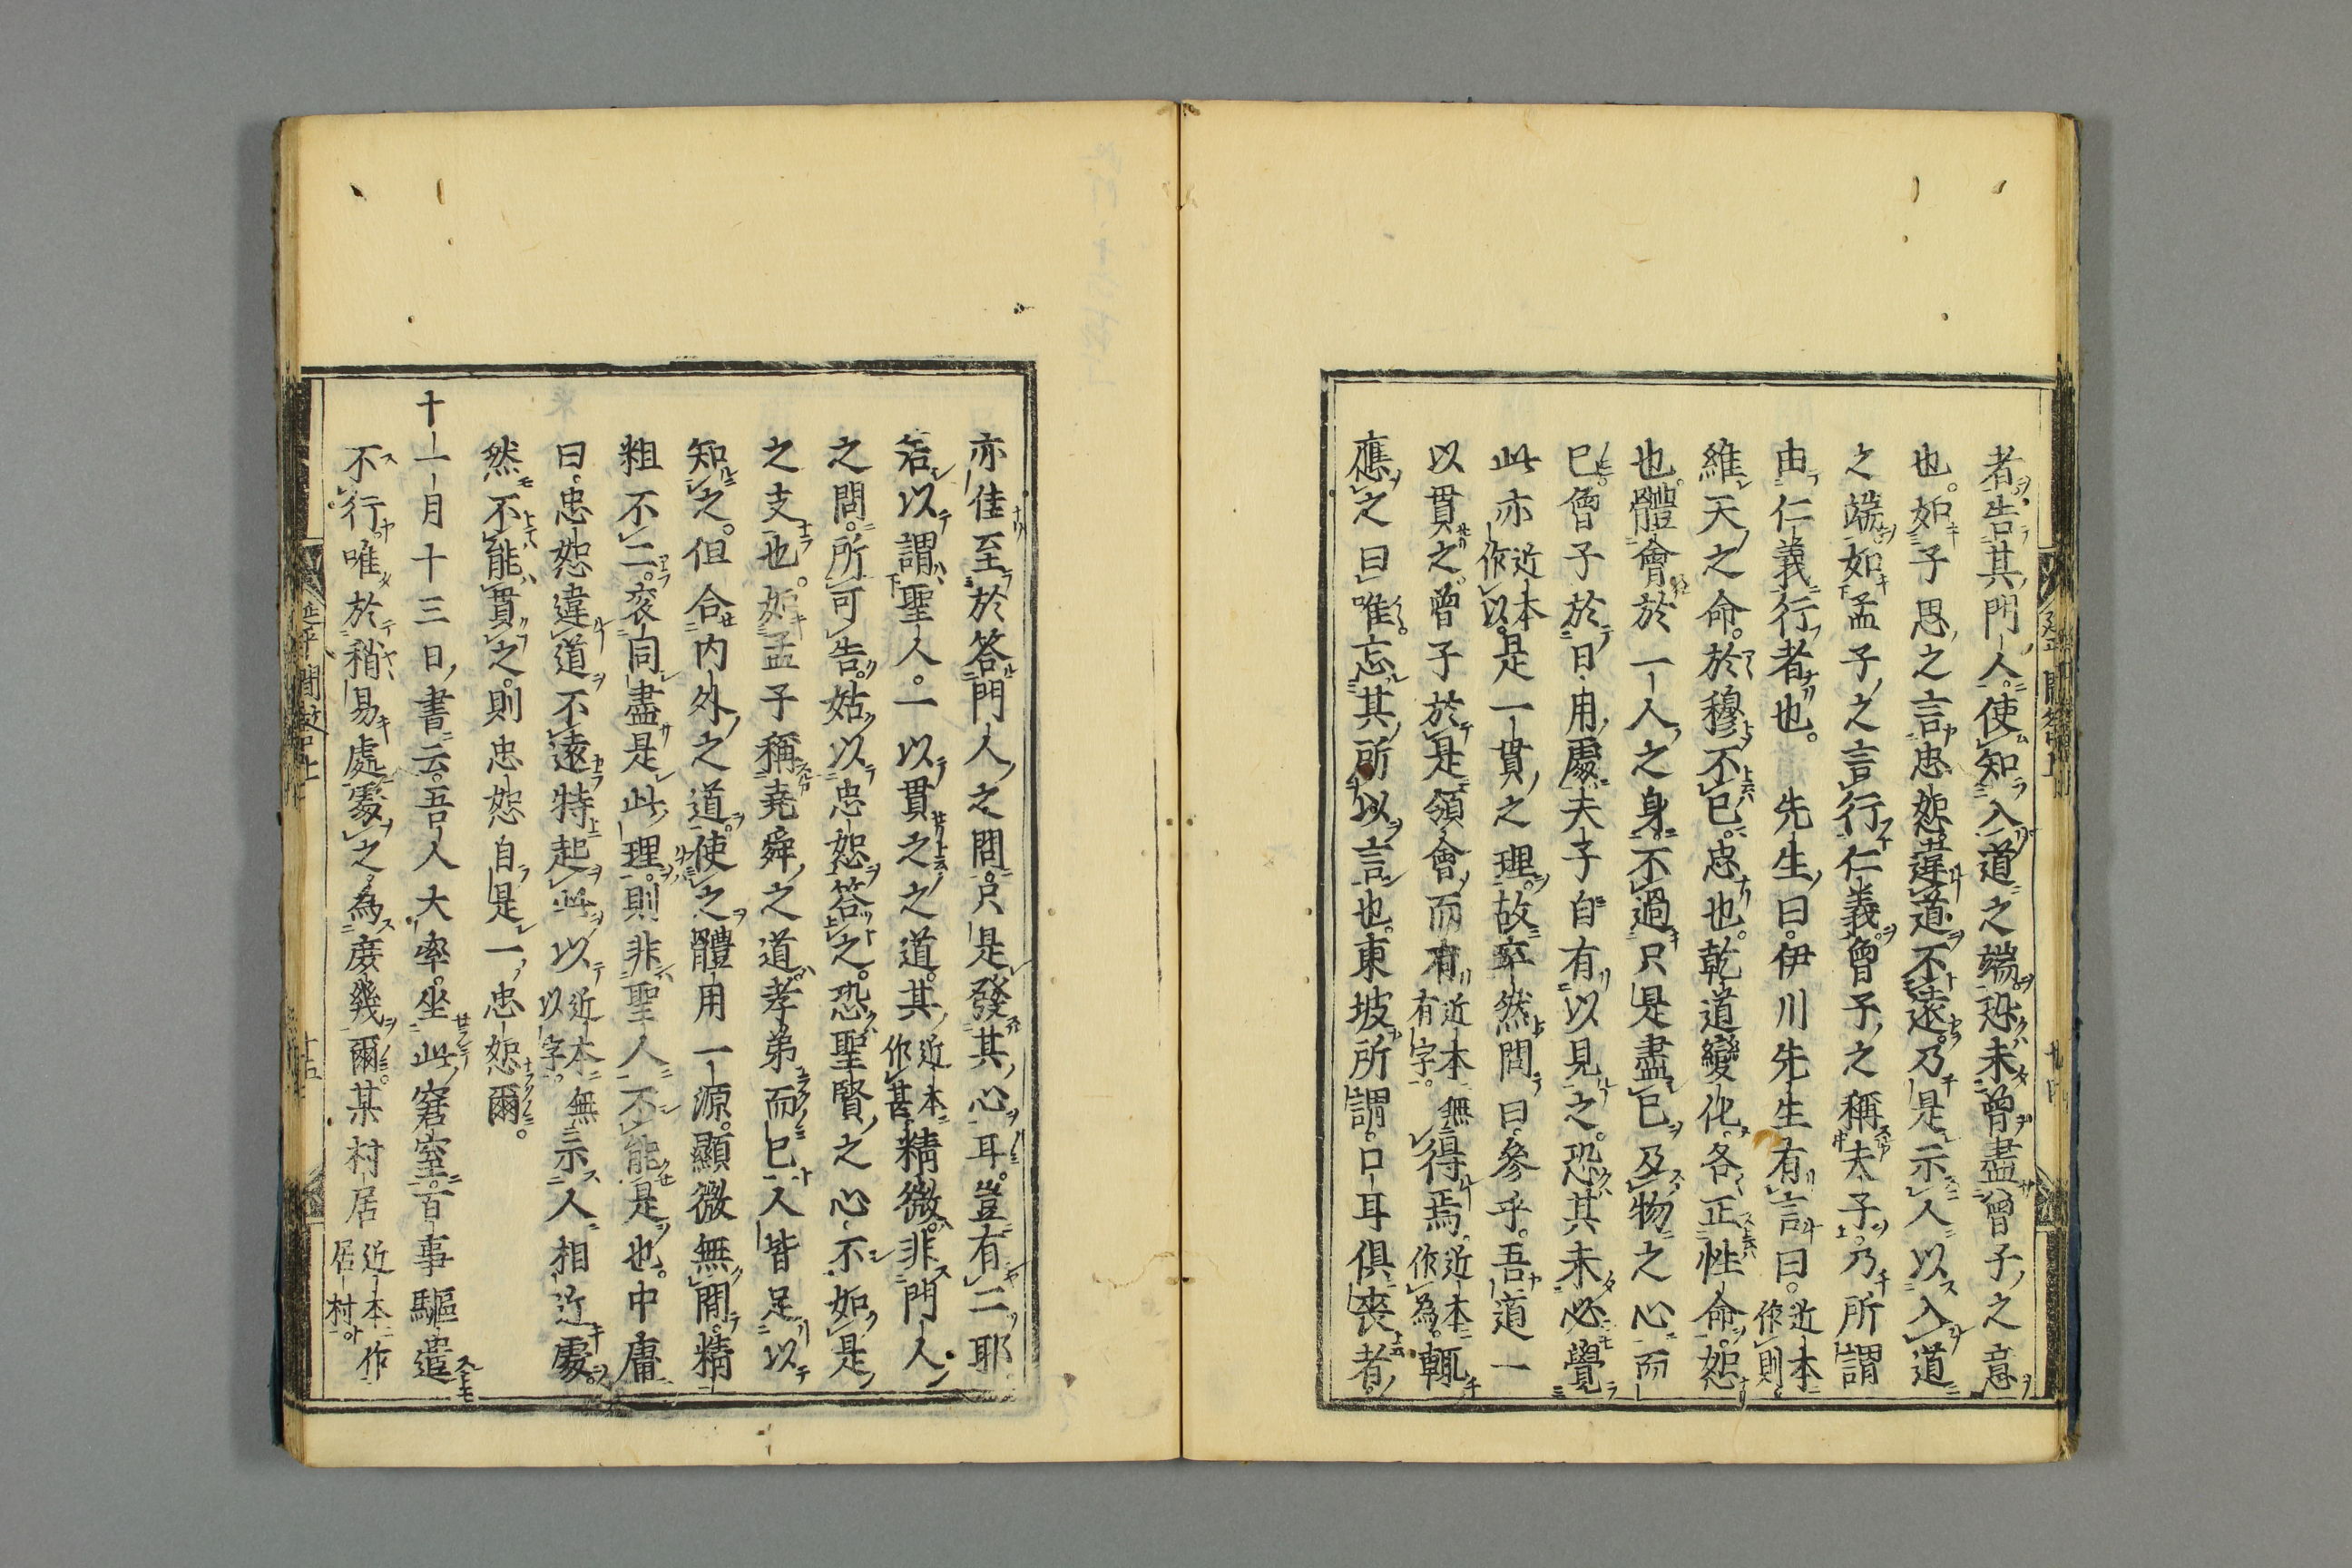 者告其門人使知入道之端恐未曾盡曾子之意
也如子思之言忠恕違道不遠乃是示人以入道
之端如孟子之言行仁義曾子之稱夫子乃所謂
由仁義行者也。先生曰伊川先生有言曰近本作則
維天之命於穆不已忠也乾道變化各正性命恕
也體會於一人之身不過只是盡已及物之心而
已曾子於日用處夫子自有以見之恐其未必覺
此亦近本作以是一貫之理故卒然問曰參乎吾道一
以貫之曾子於是領會而有近本無有字得焉近本作為輒
應之曰唯忘其所以言也東坡所謂口耳俱喪者
亦佳至於答門人之問只是發其心耳豈有二耶
若以謂聖人一以貫之之道其近本作甚精微非門人
之問所可告姑以忠恕答之恐聖賢之心不如是
之支也如孟子稱堯舜之道孝弟而已人皆足以
知之但合內外之道使之體用一源顯微無間精
粗不二袞同盡是此理則非聖人不能是也中庸
曰忠恕違道不遠特起此以近本無以字示人相近處
然不能貫之則忠恕自是一忠恕爾
十一月十三日書云吾人大率坐此窘窒百事驅遣
不行唯於稍易處處之為庶幾爾某村居近本作居村
延平問答上
十五